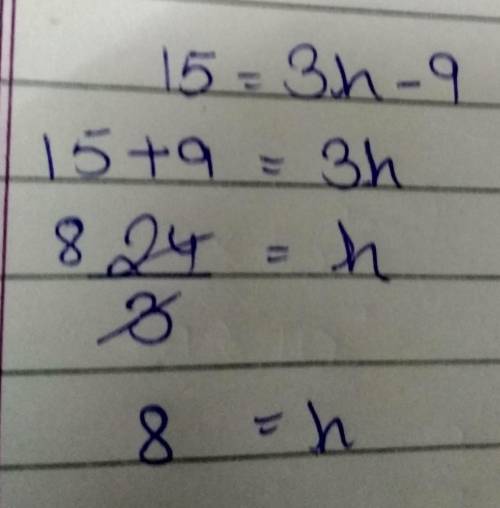 15 = 3h - 9
15 + 9 = 3h
8 24/3 = h
8 = h